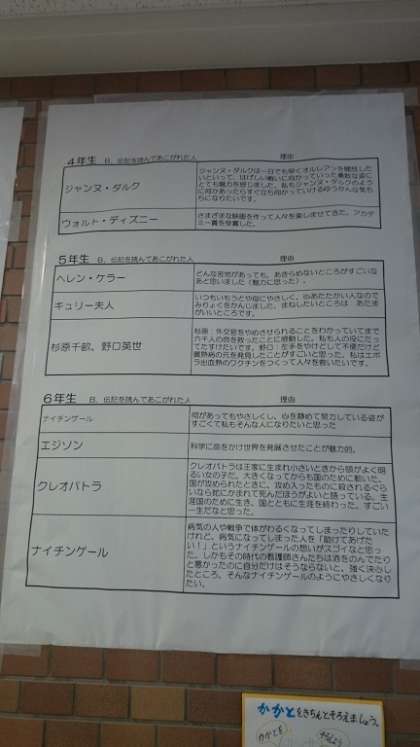 4年生 B、伝記を読んであこがれた人 理由
ジャンヌ・ダルク
ジャンヌ・ダルクは一日でも早くオルレアンを解放したいといって、はげしい戦いに向かっていった勇敢な姿にとても魅力を感じました。私もジャンヌ・ダルクのように何かあったらすぐ立ち向かっていけるゆうかんな気もちになりたいです。
ウォルト・ディズニー
さまざまな映画を作って人々を楽しませてきた。アカデミー賞を受賞した。
5年生 B、伝記を読んであこがれた人 理由
ヘレン・ケラー
どんな苦労があっても、あきらめないところがすごいなあと思いました(魅力に思った)。
キュリー夫人
いつもいもうとや母にやさしく、心あたたかい人なのでみりょくをかんじました。まねしたいところは あたまがいいところです。
杉原千畝、野口英世
杉原：外交官をやめさせられることをわかっていてまで六千人の命を救ったことに感動した。私も人の役にたってたすけたいです。野口：左手をやけどして不便だけど黄熱病の元を発見したことがすごいと思った。私はエボラ出血熱のワクチンをつくって人々を救いたいです。
6年生 B、伝記を読んであこがれた人 理由
ナイチンゲール
何があってもやさしくし、心を静めて努力している姿がすごくて私もそんな人になりたいと思った
エジソン
科学に命をかけ世界を発展させたことが魅力的。
クレオパトラ
クレオパトラは王家に生まれ小さいときから頭がよく明るい女の子だ。大きくなってからも国のために動いた。国が攻められたときに、攻め入ったものに殺されるぐらいなら蛇にかまれて死んだほうがよいと語っている。生涯国のために生き、国とともに生涯を終わった。すごい一生だなと思った。
ナイチンゲール
病気の人や戦争で体がわるくなってしまったりしていたけれど、病気になってしまった人を「助けてあげたい！」というナイチンゲールの想いがスゴイなと思った。しかもその時代の看護師さんたちは酒をのんでたりと悪かったのに自分だけはそうならないと、強く決心したところ。そんなナイチンゲールのようにやさしくなりたい。
かかとをきちんとそろえましょう。
かかとを